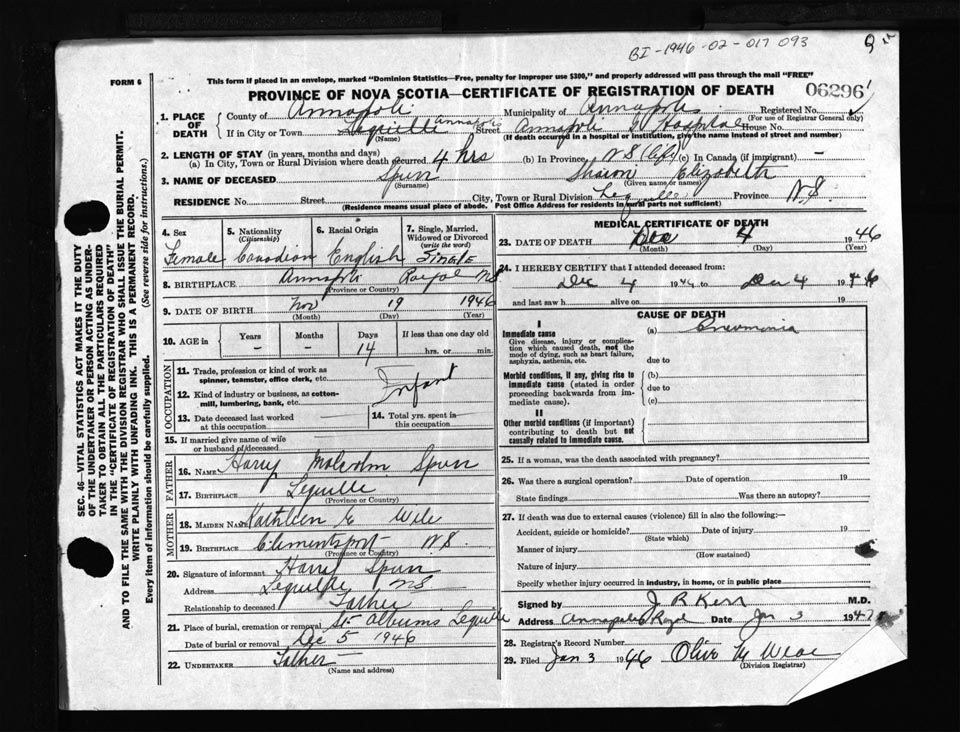 BI-1946-02-017 093
95
FORM 6
This form if placed in an envelope, marked "Dominion Statistics—Free, penalty for improper use $300," and properly addressed will pass through the mail "FREE"
PROVINCE OF NOVA SCOTIA—CERTIFICATE OF REGISTRATION OF DEATH
06296
1. PLACE OF DEATH
County of Annapolis Municipality of Annapolis Registered No.
(For use of Registrar General only)
If in City or Town Lequille Annapolis Street Annapolis Hospital House No.
(Name) (If death occurred in a hospital or institution, give the name instead of street and number)
2. LENGTH OF STAY (in years, months and days)
(a) In City, Town or Rural Division where death occurred 4 hrs (b) In Province NS (life) (c) In Canada (if immigrant) —
3. NAME OF DECEASED Spurr Sharon Elizabeth
(Surname) (Given name or names)
RESIDENCE No. Street City, Town or Rural Division Lequille Province N.S.
(Residence means usual place of abode. Post Office Address for residents in rural parts not sufficient)
4. Sex Female
5. Nationality (Citizenship) Canadian
6. Racial Origin English
7. Single, Married, Widowed or Divorced (write the word) Single
8. BIRTHPLACE Annapolis Royal NS
(Province or Country)
9. DATE OF BIRTH Nov 19 1946
(Month) (Day) (Year)
10. AGE in Years — Months — Days 14 If less than one day old hrs. or min.
OCCUPATION
11. Trade, profession or kind of work as spinner, teamster, office clerk, etc.
Infant
12. Kind of industry or business, as cotton-mill, lumbering, bank, etc.
13. Date deceased last worked at this occupation
14. Total yrs. spent in this occupation
15. If married give name of wife or husband of deceased
FATHER
16. NAME Harry Malcolm Spurr
17. BIRTHPLACE Lequille
(Province or Country)
MOTHER
18. MAIDEN NAME Kathleen E Wile
19. BIRTHPLACE Clementsport N.S.
(Province or Country)
20. Signature of informant Harry Spurr
Address Lequille NS
Relationship to deceased Father
21. Place of burial, cremation or removal St. Albans Lequille
Date of burial or removal Dec 5 1946
22. UNDERTAKER Father
(Name and address)
MEDICAL CERTIFICATE OF DEATH
23. DATE OF DEATH Dec 4 1946
(Month) (Day) (Year)
24. I HEREBY CERTIFY that I attended deceased from:
Dec 4 1946 to Dec 4 1946
and last saw h alive on 19
CAUSE OF DEATH
I
Immediate cause
Give disease, injury or complication which caused death, not the mode of dying, such as heart failure, asphyxia, asthenia, etc.
(a) Pneumonia
due to
Morbid conditions, if any, giving rise to immediate cause (stated in order proceeding backwards from immediate cause).
(b)
due to
(c)
II
Other morbid conditions (if important) contributing to death but not causally related to immediate cause.
25. If a woman, was the death associated with pregnancy?
26. Was there a surgical operation? Date of operation 19
State findings Was there an autopsy?
27. If death was due to external causes (violence) fill in also the following:—
Accident, suicide or homicide? Date of injury 19
(State which)
Manner of injury
(How sustained)
Nature of injury
Specify whether injury occurred in industry, in home, or in public place
Signed by J R Kerr M.D.
Address Annapolis Royal Date Jan 3 1947
28. Registrar's Record Number
29. Filed Jan 3 1946 Olive M
(Division Registrar)
SEC. 46—VITAL STATISTICS ACT MAKES IT THE DUTY
OF THE UNDERTAKER OR PERSON ACTING AS UNDER-
TAKER TO OBTAIN ALL THE PARTICULARS REQUIRED
IN THE "CERTIFICATE OF REGISTRATION OF DEATH"
AND TO FILE THE SAME WITH THE DIVISION REGISTRAR WHO SHALL ISSUE THE BURIAL PERMIT.
WRITE PLAINLY WITH UNFADING INK. THIS IS A PERMANENT RECORD.
Every item of information should be carefully supplied. (See reverse side for instructions.)